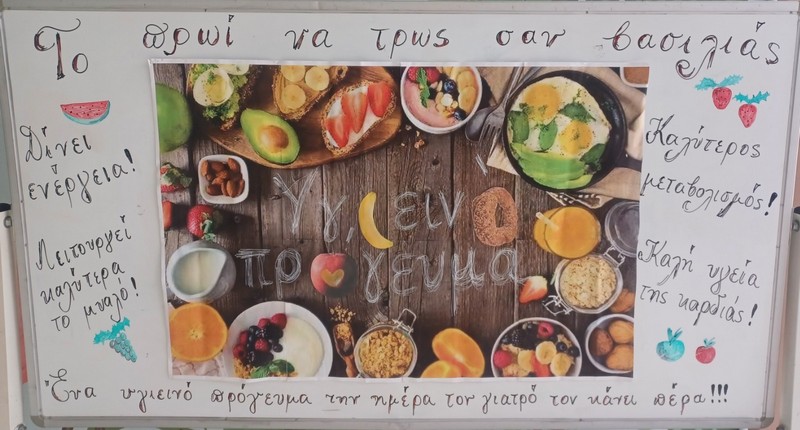 Το πρωί να τρως σαν βασιλιάς
Δίνει
ενέργεια!
Λειτουργεί
καλύτερα
το μυαλό!
Υγιεινό
πρόγευμα
Καλύτερος
μεταβολισμός!
Καλή υγεία
της καρδιάς!
Ένα υγιεινό πρόγευμα την ημέρα τον γιατρό τον κάνει πέρα!!!